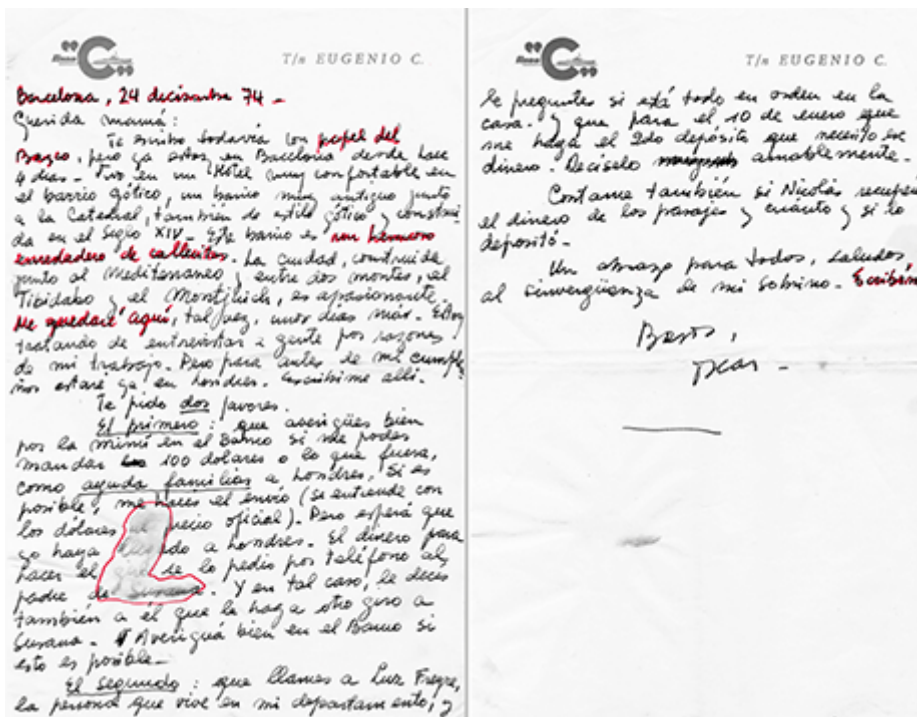 "C"
T/n EUGENIO C.
Barcelona, 24 diciembre 74 -
Querida mamá:
Te escribo todavía con papel del
Barco, pero ya estoy en Barcelona desde hace
4 días - Vivo en un Hotel muy confortable en
el barrio gótico, un barrio muy antiguo junto
a la Catedral, también de estilo gótico y construi-
da en el Siglo XIV - Este barrio es un hermoso
enredadero de callecitas. La ciudad, construida
junto al Mediterraneo y entre dos montes, el
Tibidabo y el Montjuich, es apasionante.
Me quedaré aquí, tal vez, unos días más. Estoy
tratando de entrevistar a gente por razones
de mi trabajo. Pero para antes de mi cumple-
ños estaré ya en Londres. Escribime allí.
Te pido dos favores.
El primero: que averigües bien
por la mimi en el Banco si me podes
mandar 100 dólares o lo que fuera,
como ayuda familiar a Londres. Si es
posible, me haces el envío (se entiende con
los dólares al precio oficial). Pero esperá que
yo haya llegado a Londres. El dinero para
hacer el giro se lo pedís por teléfono al
padre de Susana. Y en tal caso, le decís
también a él que le haga otro giro a
Susana - Averiguá bien en el Banco si
esto es posible -
El segundo: que llames a Luz Freyre,
la persona que vive en mi departamento, y
"C"
T/n EUGENIO C.
le preguntes si está todo en orden en la
casa. Y que para el 10 de enero que
me haga el 2do depósito que necesito ese
dinero. Decíselo amablemente.
Contame también si Nicolás recuperó
el dinero de los pasajes y cuánto y si lo
depositó -
Un abrazo para todos, saludos
al sinvergüenza de mi sobrino - Escriban
Besos,